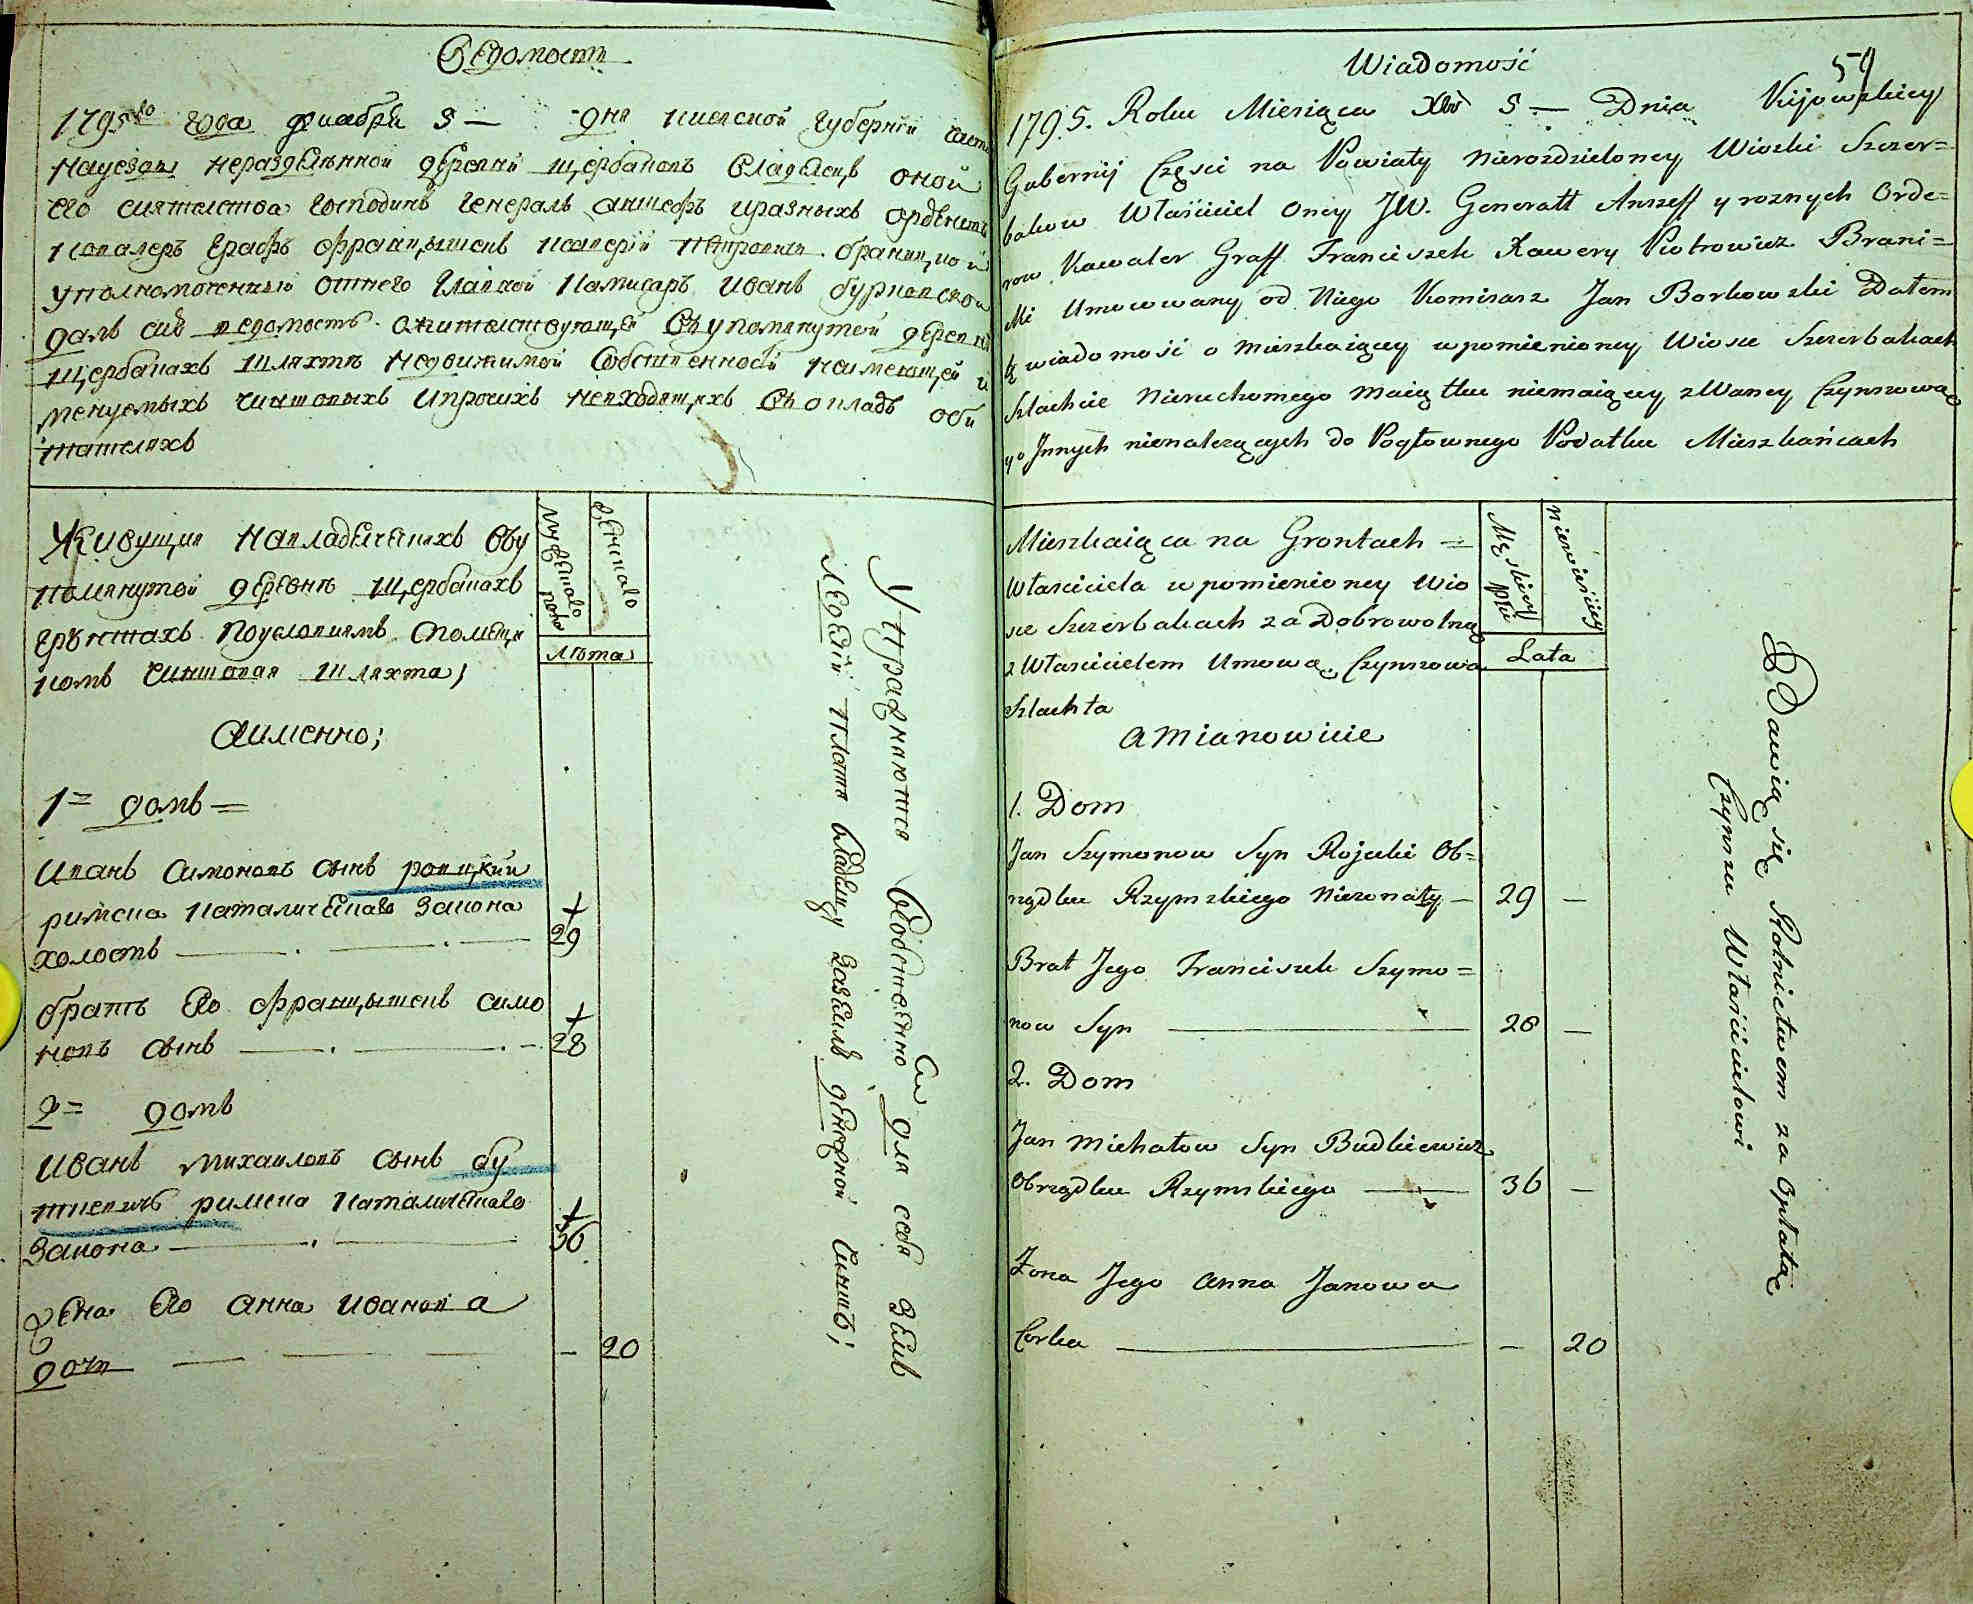 Ведомость
1795го года декабря 5 — дня киевской губернии части
науезди неразделенной деревни щербаковъ владелецъ оной
его сиятелства господинъ генералъ аншефъ иразныхъ орденовъ
кавалеръ Графъ францышекъ
уполномоченный отнего главной Комисаръ иванъ
далъ сию ведомость ожителствующей въупомянутой деревни
щербакахъ шляхтъ недвижимой собственности неимеющей и
менуемыхъ чиншовыхъ ипрочихъ невходящихъ въ окладъ оби
тателяхъ
Живущия навладелческихъ въу
помянутой деревнъ щербакахъ
грунтахъ поусловиямъ спомещи
комъ чиншовая шляхта;
аименно;
мужеска полу
женска
лъта
1= домъ =
иванъ симоновъ сынъ роицкии
римска католическаго закона
холостъ 29
братъ его францышекъ симо
новъ сынъ 28
2= домъ
иванъ михаиловъ сынъ бу
ткевичъ римска католическаго
закона 36
жена его анна иванова
дочь — 20
упражняются собственно для себя въ земле
леделии платя владелцу заземлю денежной чиншъ;
Wiadomość
59
1795. Roku Miesiąca Xbr 5 — Dnia Kijowskiey
Gubernij Częsci na Powiaty nierozdzieloney Wioski Szczer=
bakow Właściciel oney JW. Generall Anszeff y roznych Orde=
row Kawaler Graff Franciszek Xawery Piotrowicz Brani=
cki Umocowany od Niego Komisarz Jan Borkowski Dałem
tę wiadomość o mieszkaiącey wpomienioney Wiosce Szczerbakach
Szlachcie nieruchomego maiątku niemaiącey zwaney Czynszową
yo Jnnych nienalezących do Pogłownego Podatku Mieszkańcach
Mieszkaiąca na Grontach =
Własciciela wpomienioney Wio
sce Szczerbakach za Dobrowolną
z Włascicielem Umową Czynszowa
Szlachta
a Mianowicie
Męskiey płci
Niewieściey
Lata
1. Dom
Jan Szymonow Syn Rojecki Ob=
rządku Rzymskiego Niezonaty — 29 —
Brat Jego Franciszek Szymo=
now Syn — 28 —
2. Dom
Jan Michałow Syn Budkiewicz
Obrządku Rzymskiego — 36 —
Żona Jego Anna Janowa
Corka — — 20
Bawią się Rolnictwem za Opłatą
Czynszu Właścicielowi